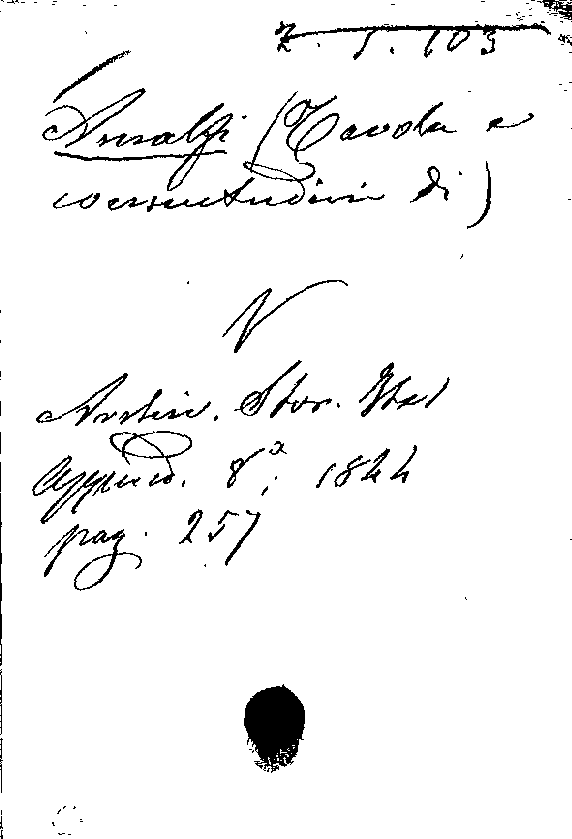 Z. 5. 103
Amalfi (Tavola e
consuetudini di)
V
Archiv. Stor. Ital
Append. 8ª; 1844
pag. 257